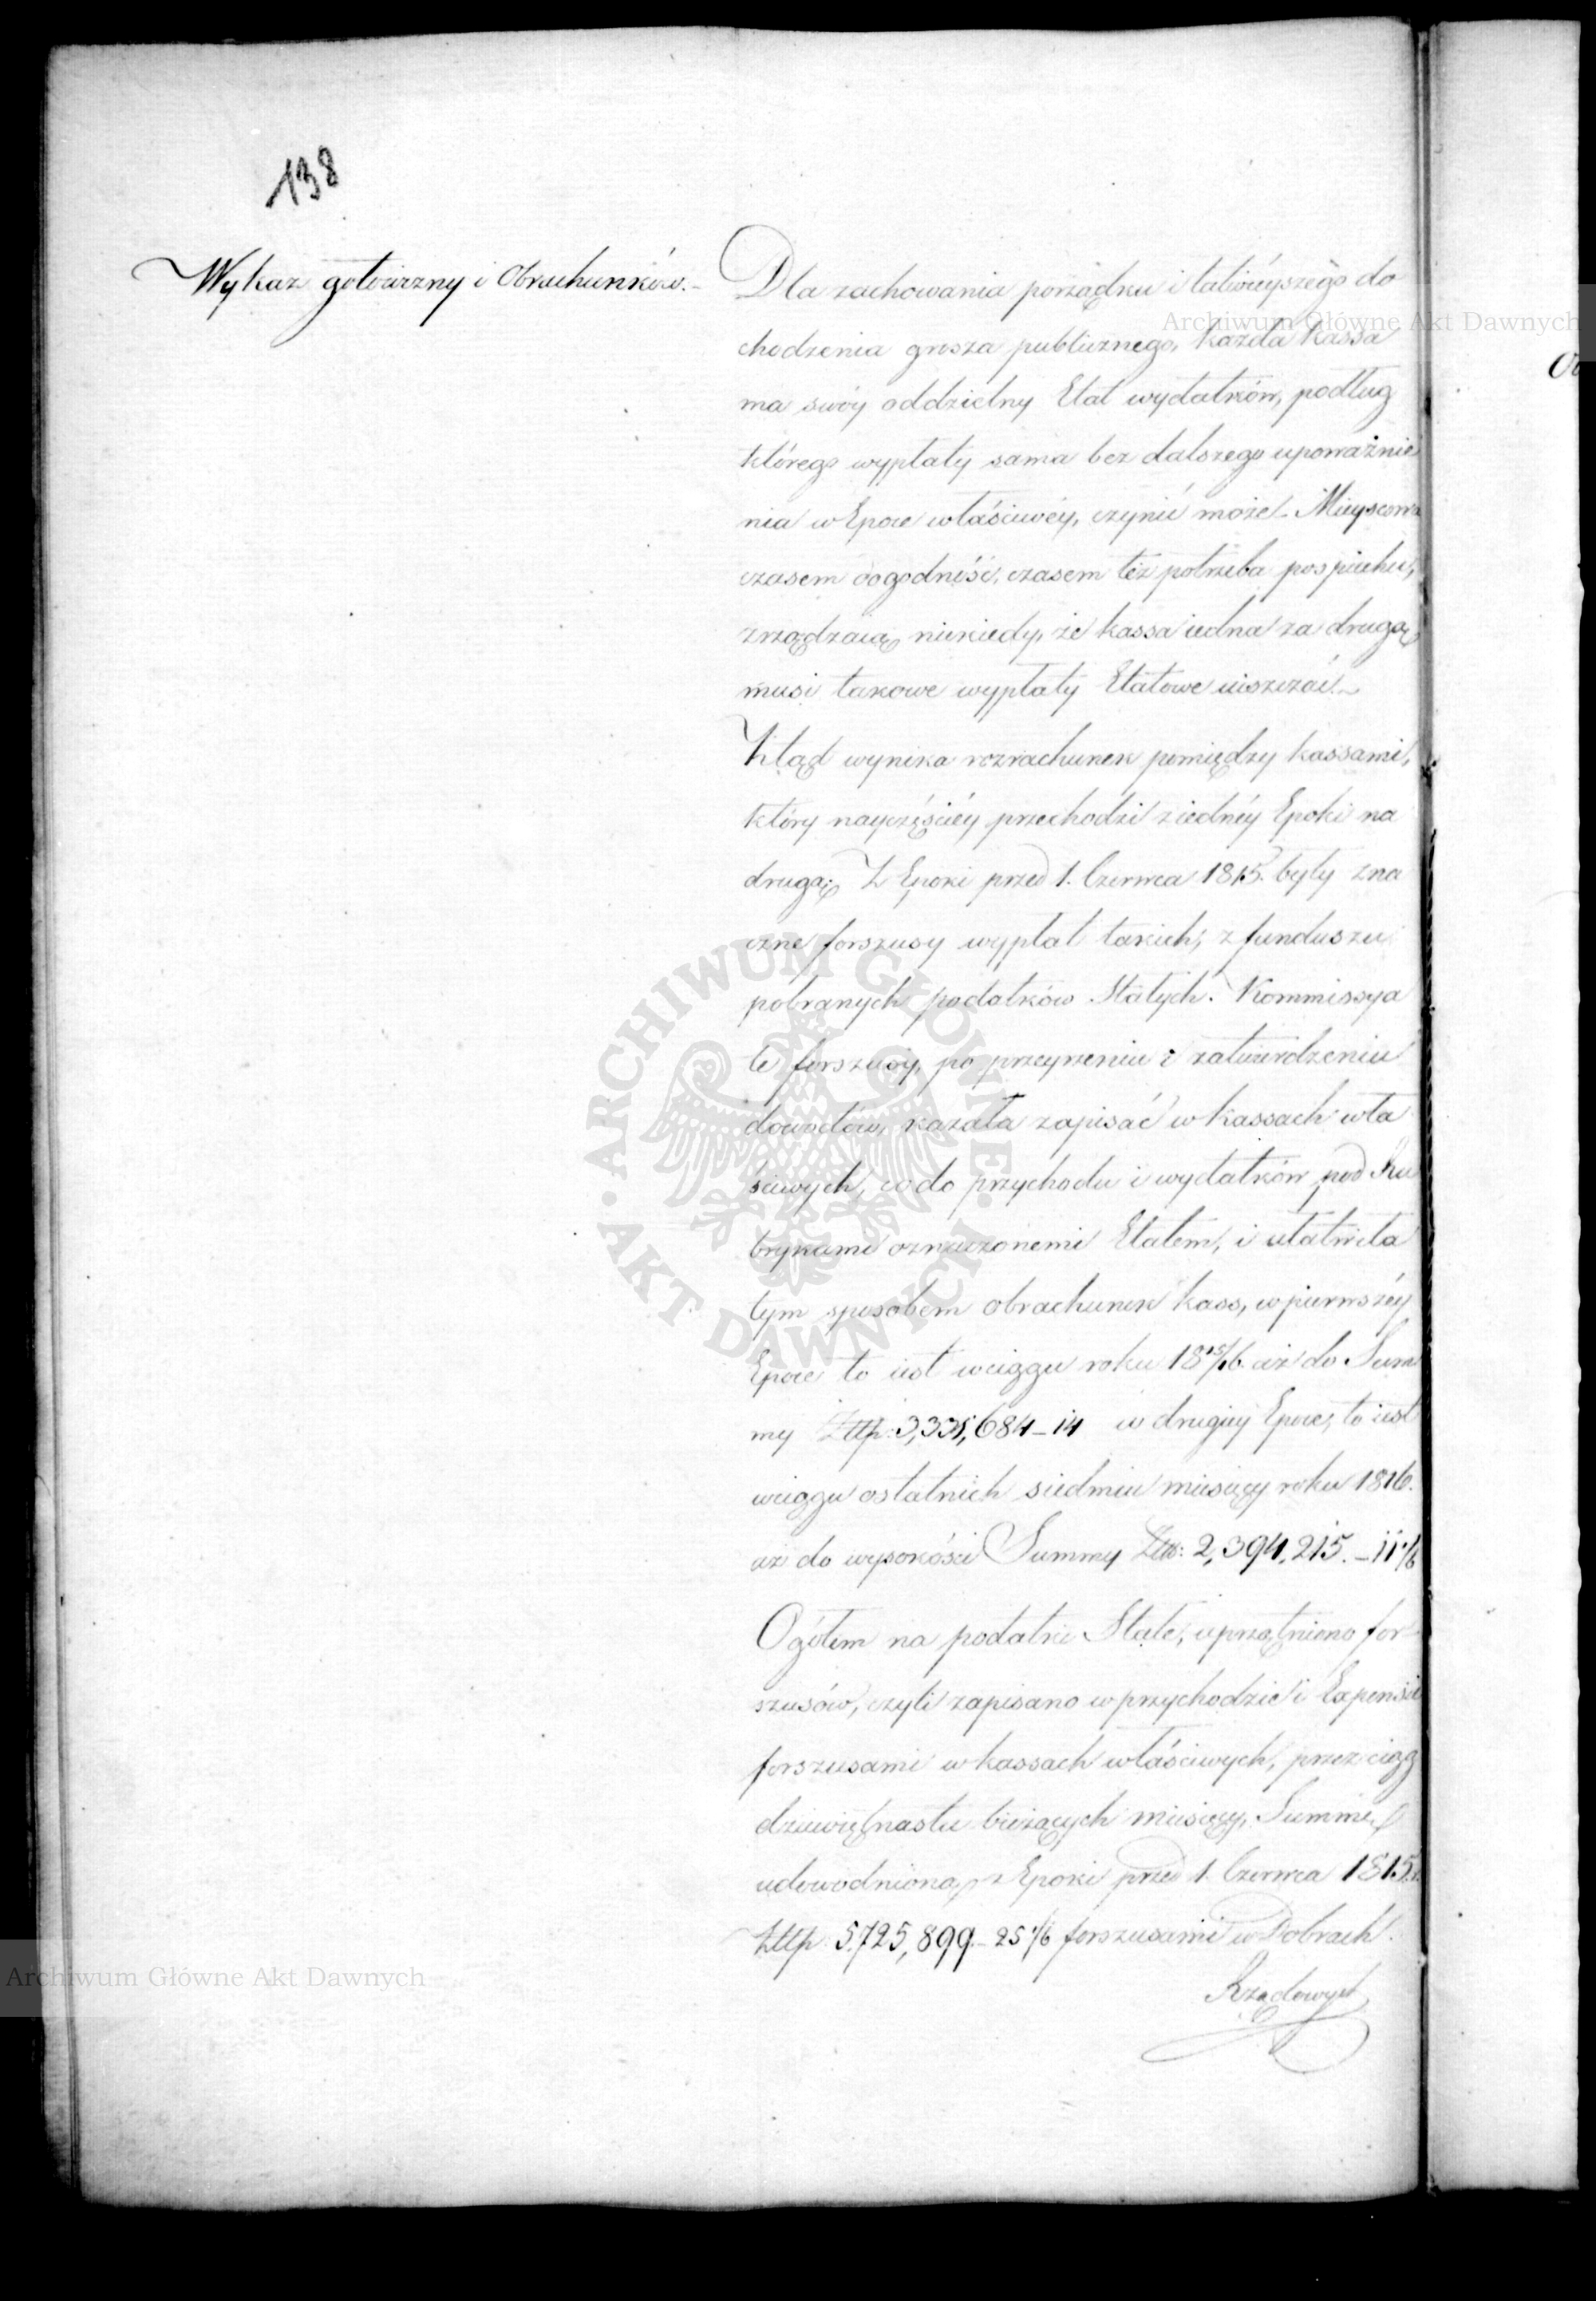 138
Wykaz gotowizny i Obrachunków.
Dla zachowania porządku i łatwieyszego do
chodzenia grosza publicznego, każda kassa
ma swóy oddzielny Etat wydatków, podług
którego wypłaty sama bez dalszego upoważnie
nia w Epoce właściwéy, czynić może. Mieyscowa
czasem dogodność, czasem téż potrzeba pospiechu,
zrządzaią niekiedy, że kassa iedna za drugą
musi takowe wypłaty Etatowe uiszczać.
Ztąd wynika rozrachunek pomiędzy kassami,
który nayczęściéy przechodzi z iednéy Epoki na
drugą; Z Epoki przed 1. Czerwca 1815. były zna
czne forszusy wypłat takich, z funduszu
pobranych podatków Stałych. Kommissya
te forszusy, po przeyrzeniu i zatwierdzeniu
dowodów, kazała zapisać w kassach wła
ściwych, co do przychodu i wydatków pod Ru
brykami oznaczonemi Etatem, i ułatwiła
tym sposobem obrachunek kass, w pierwszéy
Epoce to iest w ciągu roku 18 15/16. aż do Sum
my Złłp: 3,331,684-14 w drugiéy Epoce, to iest
w ciągu ostatnich siedmiu miesięcy roku 1816.
aż do wysokości Summy Złł: 2,394,215.-11 1/6
Ogółem na podatki Stałe, uprzątniono for-
szusów, czyli zapisano w przychodzie i Expensie
forszusami w kassach właściwych, przez ciąg
dziewiętnastu bieżących miesięcy, Summę
udowodnioną z Epoki przed 1. Czerwca 1815.
Złłp 5,725,899.-25 1/6 forszusami w Dobrach
Rządowych
Archiwum Główne Akt Dawnych
Archiwum Główne Akt Dawnych
ARCHIWUM GŁÓWNE AKT DAWNYCH